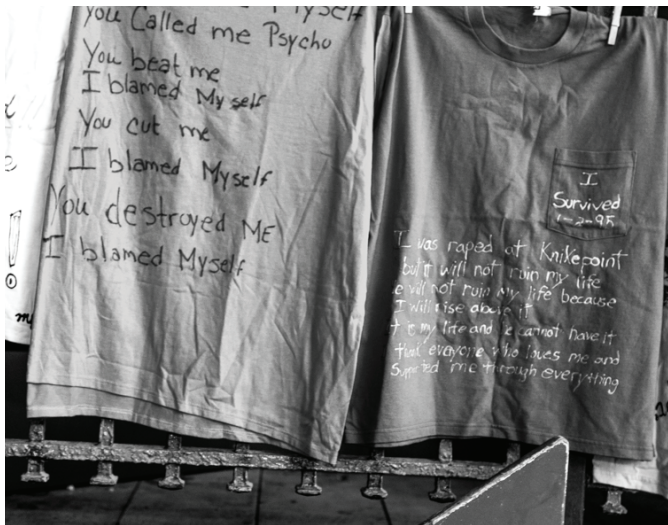 Myself
You Called me Psycho
You beat me
I blamed Myself
You cut me
I blamed Myself
You destroyed ME
I blamed Myself
I
Survived
1-2-95
I was raped at Knifepoint
but it will not ruin my life
e will not ruin my life because
I will rise above it
t is my life and he cannot have it
that everyone who loves me and
Supported me through everything